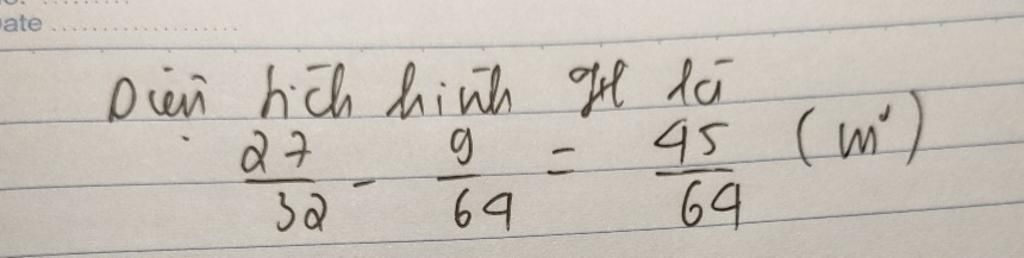 ate
Diện tích hình gH là
27/32 - 9/64 = 45/64 (m²)